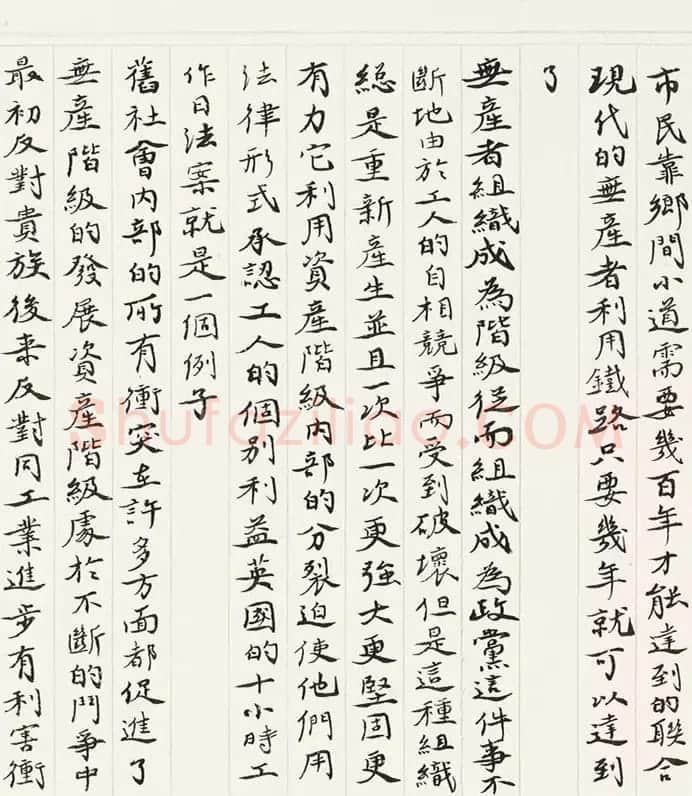 市民靠鄉間小道需要幾百年才能達到的聯合
現代的無產者利用鐵路只要幾年就可以達到
了
無產者組織成為階級從而組織成為政黨這件事不
斷地由於工人的自相競爭而受到破壞但是這種組織
總是重新產生並且一次比一次更強大更堅固更
有力它利用資產階級內部的分裂迫使他們用
法律形式承認工人的個別利益英國的十小時工
作日法案就是一個例子
舊社會內部的所有衝突在許多方面都促進了
無產階級的發展資產階級處於不斷的鬥爭中
最初反對貴族後來反對同工業進步有利害衝
Shufaziliao.COM